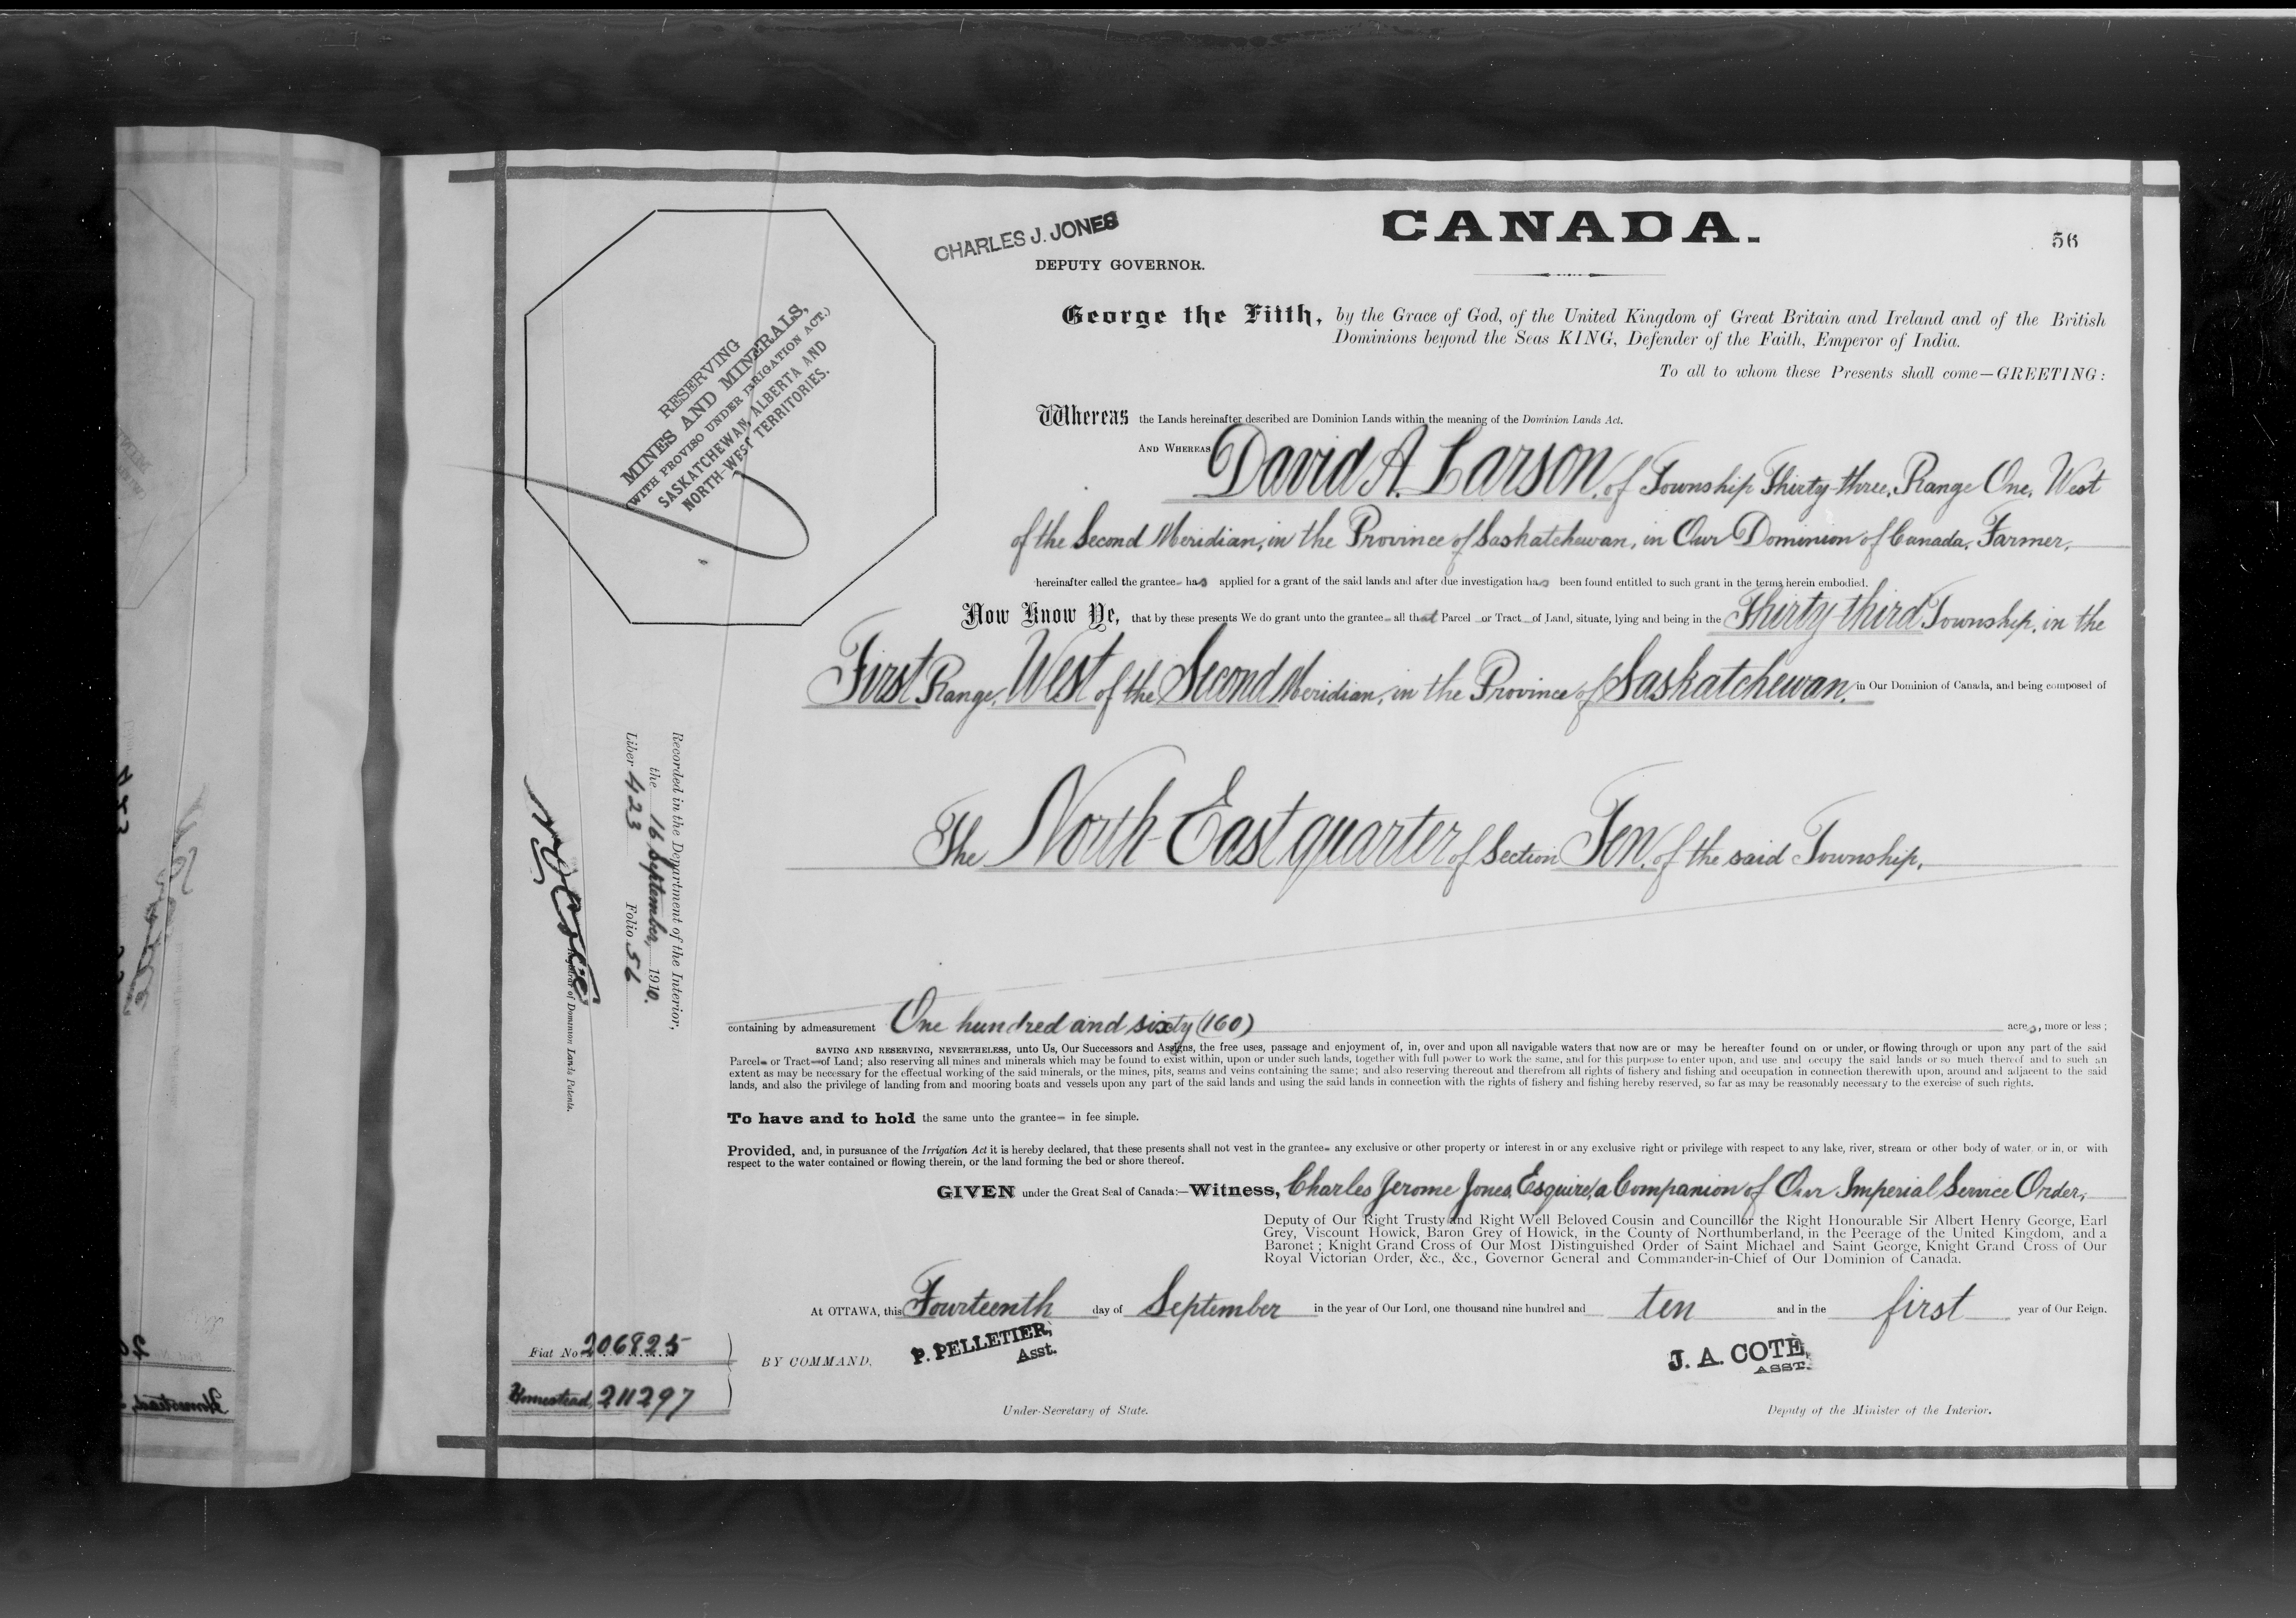 CANADA.
56
CHARLES J. JONES
DEPUTY GOVERNOR.
George the Fifth, by the Grace of God, of the United Kingdom of Great Britain and Ireland and of the British
Dominions beyond the Seas KING, Defender of the Faith, Emperor of India.
To all to whom these Presents shall come—GREETING:
RESERVING
MINES AND MINERALS,
(WITH PROVISO UNDER IRRIGATION ACT.)
SASKATCHEWAN, ALBERTA AND
NORTH-WEST TERRITORIES.
Whereas the Lands hereinafter described are Dominion Lands within the meaning of the Dominion Lands Act.
AND WHEREAS David A. Larson, of Township Thirty-three, Range One, West
of the Second Meridian, in the Province of Saskatchewan, in Our Dominion of Canada, Farmer,
hereinafter called the grantee has applied for a grant of the said lands and after due investigation has been found entitled to such grant in the terms herein embodied.
Now Know Ye, that by these presents We do grant unto the grantee all that Parcel or Tract of Land, situate, lying and being in the Thirty-third Township, in the
First Range, West of the Second Meridian, in the Province of Saskatchewan, in Our Dominion of Canada, and being composed of
The North-East quarter of Section Ten, of the said Township,
containing by admeasurement One hundred and sixty (160) acres, more or less;
SAVING AND RESERVING, NEVERTHELESS, unto Us, Our Successors and Assigns, the free uses, passage and enjoyment of, in, over and upon all navigable waters that now are or may be hereafter found on or under, or flowing through or upon any part of the said
Parcel or Tract of Land; also reserving all mines and minerals which may be found to exist within, upon or under such lands, together with full power to work the same, and for this purpose to enter upon, and use and occupy the said lands or so much thereof and to such an
extent as may be necessary for the effectual working of the said minerals, or the mines, pits, seams and veins containing the same; and also reserving thereout and therefrom all rights of fishery and fishing and occupation in connection therewith upon, around and adjacent to the said
lands, and also the privilege of landing from and mooring boats and vessels upon any part of the said lands and using the said lands in connection with the rights of fishery and fishing hereby reserved, so far as may be reasonably necessary to the exercise of such rights.
To have and to hold the same unto the grantee in fee simple.
Provided, and, in pursuance of the Irrigation Act it is hereby declared, that these presents shall not vest in the grantee any exclusive or other property or interest in or any exclusive right or privilege with respect to any lake, river, stream or other body of water, or in, or with
respect to the water contained or flowing therein, or the land forming the bed or shore thereof.
GIVEN under the Great Seal of Canada:—Witness, Charles Jerome Jones, Esquire, a Companion of Our Imperial Service Order,
Deputy of Our Right Trusty and Right Well Beloved Cousin and Councillor the Right Honourable Sir Albert Henry George, Earl
Grey, Viscount Howick, Baron Grey of Howick, in the County of Northumberland, in the Peerage of the United Kingdom, and a
Baronet; Knight Grand Cross of Our Most Distinguished Order of Saint Michael and Saint George, Knight Grand Cross of Our
Royal Victorian Order, &c., &c., Governor General and Commander-in-Chief of Our Dominion of Canada.
At OTTAWA, this Fourteenth day of September in the year of Our Lord, one thousand nine hundred and ten and in the first year of Our Reign.
BY COMMAND,
P. PELLETIER,
Asst.
Under-Secretary of State.
J. A. COTE,
ASST.
Deputy of the Minister of the Interior.
Recorded in the Department of the Interior,
the 16 September, 1910.
Liber 423 Folio 56
Registrar of Dominion Lands Patents.
Fiat No 206825
Homestead, 211297